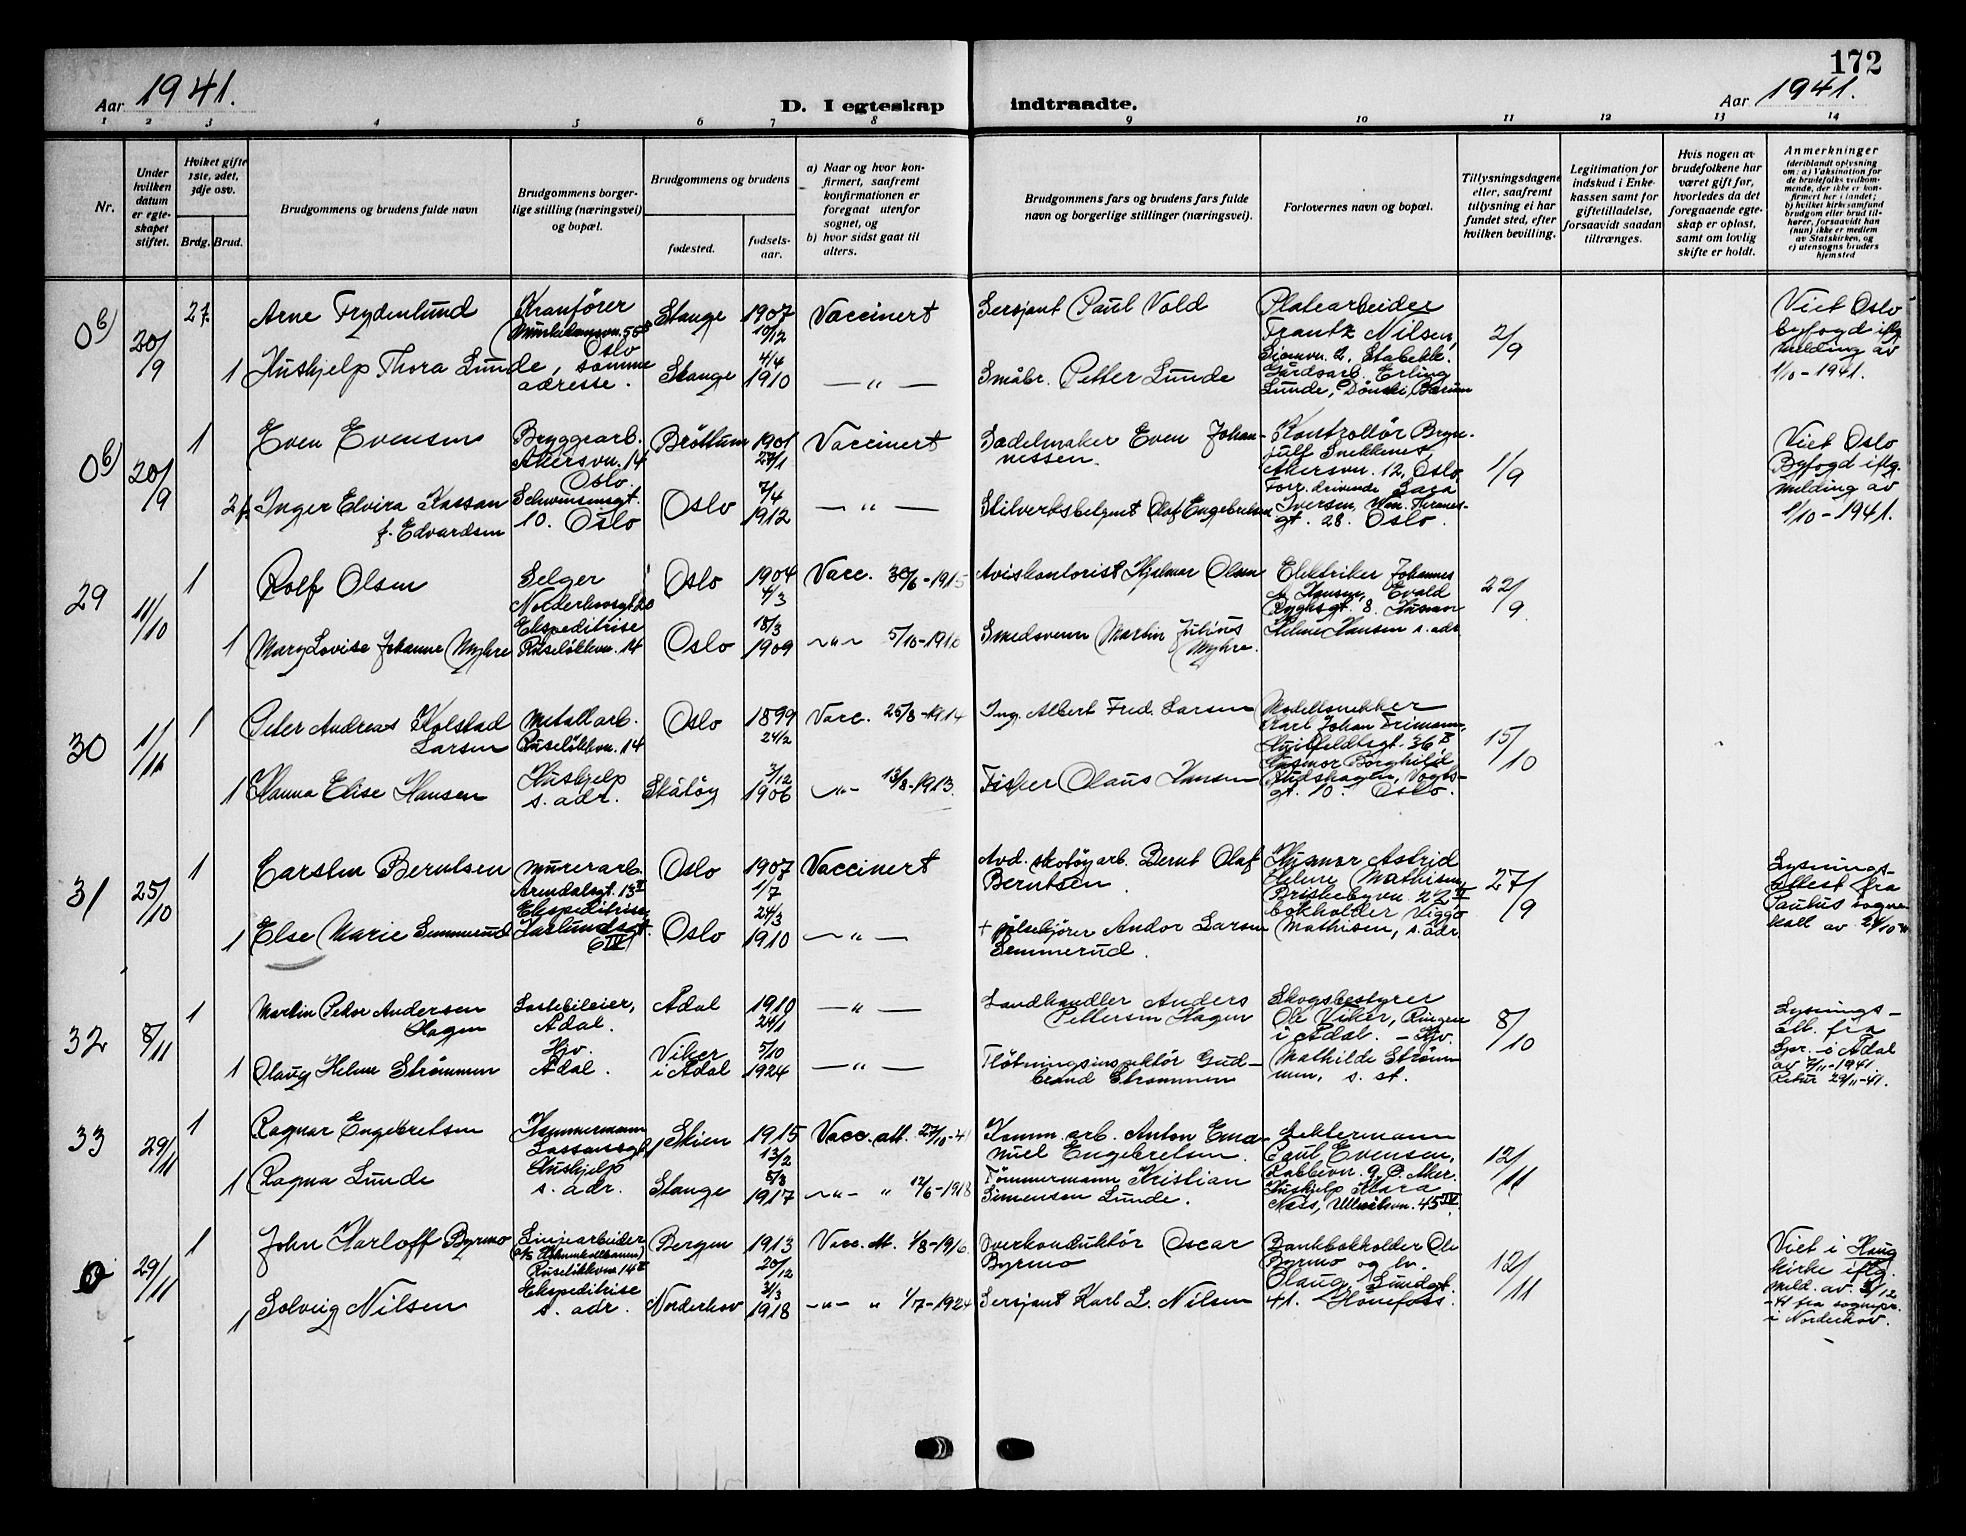 172
Aar 1941.
D. I egteskap indtraadte.
Aar 1941.
1 2 3 4 5 6 7 8 9 10 11 12 13 14
Nr.
Under hvilken datum er egteskapet stiftet.
Hvilket gifte 1ste, 2det, 3dje osv.
Brdg. Brud.
Brudgommens og brudens fulde navn
Brudgommens borgerlige stilling (næringsvei) og bopæl.
Brudgommens og brudens
fødested.
fødselsaar.
a) Naar og hvor konfirmert, saafremt konfirmationen er foregaat utenfor sognet, og
b) hvor sidst gaat til alters.
Brudgommens fars og brudens fars fulde navn og borgerlige stillinger (næringsvei).
Forlovernes navn og bopæl.
Tillysningsdagene eller, saafremt tillysning ei har fundet sted, efter hvilken bevilling.
Legitimation for indskud i Enkekassen samt for giftetilladelse, forsaavidt saadan tiltrænges.
Hvis nogen av brudefolkene har været gift før, hvorledes da det foregaaende egteskap er opløst, samt om lovlig skifte er holdt.
Anmerkninger
(deriblandt oplysning om: a) Vaksination for de brudefolks vedkommende, der ikke er konfirmert her i landet; b) hvilket kirkesamfund brudgom eller brud tilhører, forsaavidt han (hun) ikke er medlem av Statskirken, og c) utensogns bruders hjemsted
0b) 20/9 2f.
Arne Frydenlund
Kranfører
Oslo
Stange 1907 10/12
Vaccinert
Sersjant Paul Vold
Platearbeider
Frantz Nilsen,
2, Stabekk.
2/9
Viet Oslo
byfogd iflg
melding av
1/10-1941.
1 Hushjelp Thora Lunde, samme
adresse.
Stange 4/4 1910
— " —
Småbr. Petter Lunde
Gårdsarb. Erling
Lunde, Bærum
0b) 20/9 1
Even Evensen
Bryggearb.
Akersvn. 14
Oslo.
Brøttum 1901 27/1
Vaccinert
Sadelmaker Even Johannessen.
Kontrollør Brynjulf Snekkenes,
Akersvn. 12, Oslo,
1/9
Viet Oslo
Byfogd iflg.
melding av
1/10-1941.
2f. Inger Elvira Kassan
f. Edvardsen
Schwensensgt.
10. Oslo
Oslo 7/4 1912
— " —
Olaf Engebretsen
Forr.drivende
Iversen,
gt. 28. Oslo.
29 11/10 1
Rolf Olsen
Selger
Oslo 1904 4/3
Vacc. 30/6-1915
Aviskontorist Hjalmar Olsen
Elektriker Johannes
Hansen, Evald
Ryghsgt. 8. Husmor
Helene Hansen s. adr
22/9
1 Mary Lovise Johanne Myhre
Ekspeditrise
Ruseløkkvn. 14
Oslo 18/3 1909
—"— 5/10-1916
Smedsvenn Martin Julius
Myhre.
30 1/11 1
Peter Andreas Kolstad
Larsen
Metallarb.
Ruseløkkvn. 14
Oslo 1899 24/2
Vacc. 25/8-1914
Ing. Albert Fred. Larsen
Modellsnekker
Karl Johan Frimann,
Huitfeldtsgt. 36 II
15/10
1 Hanna Elise Hansen
Hushjelp
s. adr.
Skåtøy 3/12 1906
—"— 13/8-1913.
Fisker Olaus Hansen
Husmor Borghild
Rudshagen, Vogtsgt. 10. Oslo.
31 25/10 1
Carsten Berntsen
Murerarb.
Arendalsgt. 13 II
Oslo 1907 1/7
Vaccinert
Avd. skotøyarb. Bernt Olaf
Berntsen.
Husmor Astrid
Helene Mathisen,
Briskebyvn. 22 IV
27/9
Lysningsattest fra
Paulus sognekall av 24/10 41
1 Else Marie Semmerud
Ekspeditrise,
Oslo 24/3 1910
— " —
+ pølsekjører Andor Larsen
Semmerud.
bokholder Viggo
Mathisen, s. adr.
32 8/11 1
Martin Peter Andersen
Hagen
Lastebileier,
Ådal.
Ådal 1910 24/1
— " —
Landhandler Anders
Pettersen Hagen
Skogsbestyrer
Ole Viker, Ringerud
i Ådal. – Hjv.
8/10
Lysningsatt. fra
Spr. i Ådal
av 7/11-1941.
Retur 29/11-41.
1 Olaug Helene Strømmen
Hjv.
Ådal.
Viker
i Ådal 5/10 1924
— " —
Fløtningsinspektør Gudbrand Strømmen
Mathilde Strømmen, s. st.
33 29/11 1
Ragnar Engebretsen
Skien 1915 13/2
Vacc. att. 27/10-41
Komm. arb. Anton Emanuel Engebretsen.
Paul Evensen,
Rabbevn. 9, Aker.
12/11
1 Ragna Lunde
Hushjelp
s. adr.
Stange 5/3 1917
—"— " 12/6-1918
Tømmermann Kristian
Simensen Lunde.
Hushjelp Klara
Næss, Ullevålsvn. 45 IV.
0 29/11 1
John Harloff Byrmo
Linjearbeider
(A/S Holmenkollbanen)
Ruseløkkvn. 14 II
Bergen 1913 20/12
Vacc. att. 1/8-1916.
Overkonduktør Oscar
Byrmo
Bankbokholder Ole
Byrmo og lv.
Olaug, Lundgt.
41. Hønefoss.
12/11
Viet i Haug
kirke iflg.
meld. av 3/12
-41 fra sognepr.
i Norderhov.
1 Solveig Nilsen
Ekspeditrise
s. adr.
Norderhov 3/3 1918
—"— " 1/7-1924
Sersjant Karl L. Nilsen